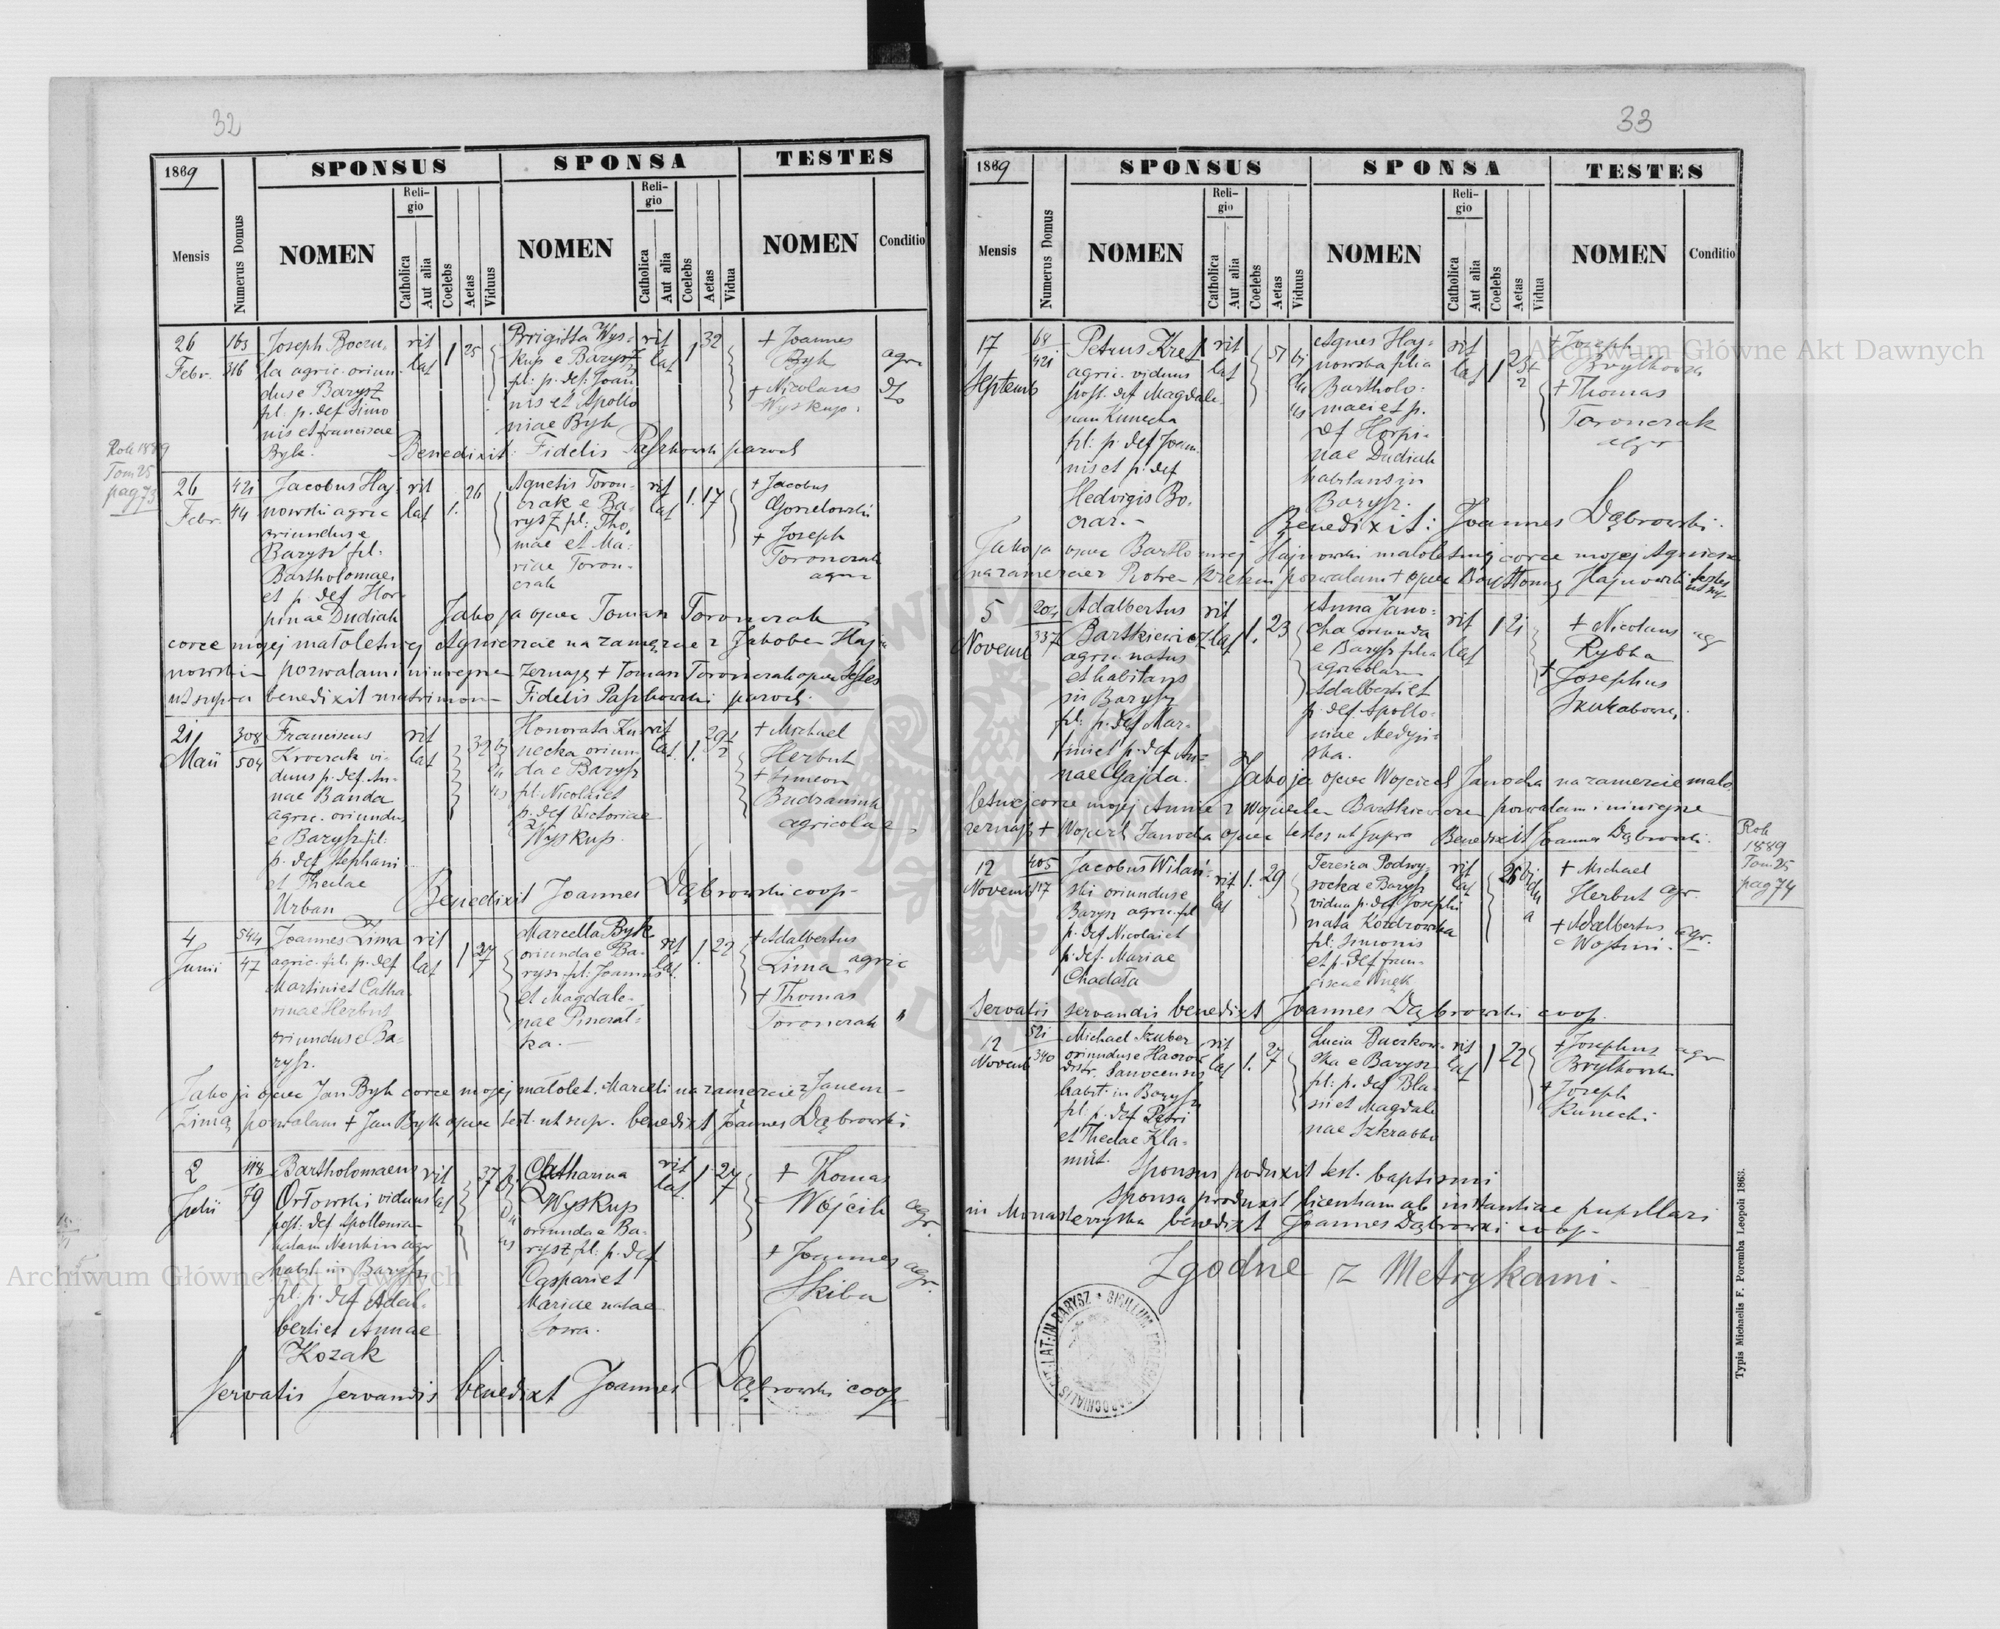 32
1869
SPONSUS
SPONSA
TESTES
Mensis
Numerus Domus
NOMEN
Religio
Catholica
Aut alia
Coelebs
Aetas
Viduus
NOMEN
Religio
Catholica
Aut alia
Coelebs
Aetas
Vidua
NOMEN
Conditio
26
Febr.
165
Joseph
la agric. oriun
dus e Barysz
fil: p. def. Simo
nis et Franciscae
Byk.
rit
lat
1
25
Brigitta Wys-
kup e Barysz
fil: p. def: Joan
nis et Apollo
niae Byk
rit
lat
1
32
+ Joannes
Byk
+ Nicolaus
Wyskup.
agr
Benedixit: Fidelis Paszkowski paroch
Rok 1889
Tom 25
pag 73
26
Febr.
421
44
Jacobus Haj
nowski agric
oriundus e
Barysz fil.
Bartholomaei
et p. def Hor
pinae Dudiak
rit
lat
1.
26
Agnetis Toron-
czak e Ba-
rysz fil: Tho
mae et Ma-
riae Toron-
czak
rit
lat
1.
17
+ Jacobus
+ Joseph
Toronczak
Jako ja ojciec Tomasz Toronczak
corce mojej maloletniej Agnieszce na zamęzcie z Jakobem Haj
nowski pozwalam i niniejsze zeznaję + Tomasz Toronczak ojciec testes
ut supra benedixit matrimon Fidelis Paszkowski paroch.
21
Maii
308
504
Franciscus
Kroczak vi-
duus p. def. An-
nae Banda
agric. oriundus
e Barysz fil:
p. def Stephani
et Theclae
Urban
rit
lat
32
Honorata Ku
necka oriun
da e Barysz
fil. Nicolai et
p. def Victoriae
Wyskup.
rit
lat.
1.
+ Michael
Herbut
+ Simeon
agricolae
Benedixit Joannes Dąbrowski coop-
4
Junii
544
47
Joannes Zima
agric. fil. p. def
Martini et Catha-
rinae Herbut
oriundus e Ba-
rysz.
rit
lat
1
27
Marcella Byk
oriunda e Ba-
rysz fil: Joannis
et Magdale-
nae
rit
lat
1.
22
+ Adalbertus
Zima
agric
+ Thomas
Toronczak
"
Jako ja ojciec Jan Byk corce mojej małolet. Marceli na zamezcie z Janem
Zimą pozwalam + Jan Byk ojciec test. ut sup. benedixt Joannes Dąbrowski
2
Julii
118
79
Bartholomaeus
Orłowski viduus
post. def Apollonia
habit. in Barysz
fil. p. def Adal-
berti et Annae
Kozak
rit
lat
37
Catharina
Wyskup
oriunda e Ba-
rysz fil: p. def
Caspari et
Mariae natae
Sowa.
rit
lat.
1.
27
+ Thomas
Wójcik
agr.
+ Joannes
Skiba
agr.
Servatis servandis benedixt Joannes Dąbrowski coop
33
1869
SPONSUS
SPONSA
TESTES
Mensis
Numerus Domus
NOMEN
Religio
Catholica
Aut alia
Coelebs
Aetas
Viduus
NOMEN
Religio
Catholica
Aut alia
Coelebs
Aetas
Vidua
NOMEN
Conditio
17
Septemb
68
421
Petrus Kret
agric. viduus
post. def Magdale-
nam Kunecka
fil: p. def Joan-
nis et p. def
Hedvigis Bo-
czar.-
rit
lat
51
Agnes Haj-
nowska filia
Bartholo-
maei et p.
def Horpi-
nae Dudiak
habitans in
Barysz.
rit
lat
1
+ Joseph
+ Thomas
Toronczak
agr
Benedixit: Joannes Dąbrowski.
Jako ja ojciec Bartłomiej Hajnowski małoletniej corce mojej Agnieszce
na zamezcie z Piotrem Kretem pozwalam + ojciec Bartłomiej Hajnowski testes
ut sup.
5
Novemb
204
337
Adalbertus
Bartkiewicz
agric natus
et habitans
in Barysz
fil: p. def Mar-
tini et p. def An-
nae Gajda.
rit
lat
1.
23
Anna Jano-
cha oriunda
e Barysz filia
agricolarum
Adalberti et
p. def Apollo-
niae
rit
lat
1
21
+ Nicolaus
Rybka
+ Josephus
ag
Jako ja ojciec Wojciech Janocha na zamezcie mało
letniej corce mojej Annie z Wojciechem Bartkiewiczem pozwalam i niniejsze
zeznaję + Wojciech Janocha ojciec testes ut supra Benedixit Joannes Dąbrowski.
Rok
1889
Tom 25
pag 74
12
Novemb
405
117
Jacobus Wilań-
ski oriundus e
Barysz agric. fil
p. def Nicolai et
p. def. Mariae
Chadata
rit
lat
1.
29
Teresia Podwy
socka e Barysz
vidua p. def Josephi
nata Kozdrowska
fil: Simonis
et p. def Fran-
ciscae Wnęk
rit
lat
+ Michael
Herbut
agr.
+ Adalbertus
agr.
Servatis servandis benedixt Joannes Dąbrowski coop.
12
Novemb
521
340
Michael Szuber
oriundus e Haczow
distr. Sanocensis
habit. in Barysz
fil. p. def Petri
et Theclae Kla-
mut.
rit
lat
1.
27
Lucia Buczkow-
ska e Barysz
fil: p. def Bla-
sii et Magdale
nae
rit
lat
1
22
+ Josephus
+ Joseph
Kunecki
agr
Sponsus produxit test. baptismi
Sponsa produxit licentiam ab instantiae pupillari
in Monasterzyska benedixt Joannes Dąbrowski coop-
Zgodne z Metrykami.
Typis Michaelis F. Poremba Leopoli 1863.
Archiwum Główne Akt Dawnych
Archiwum Główne Akt Dawnych